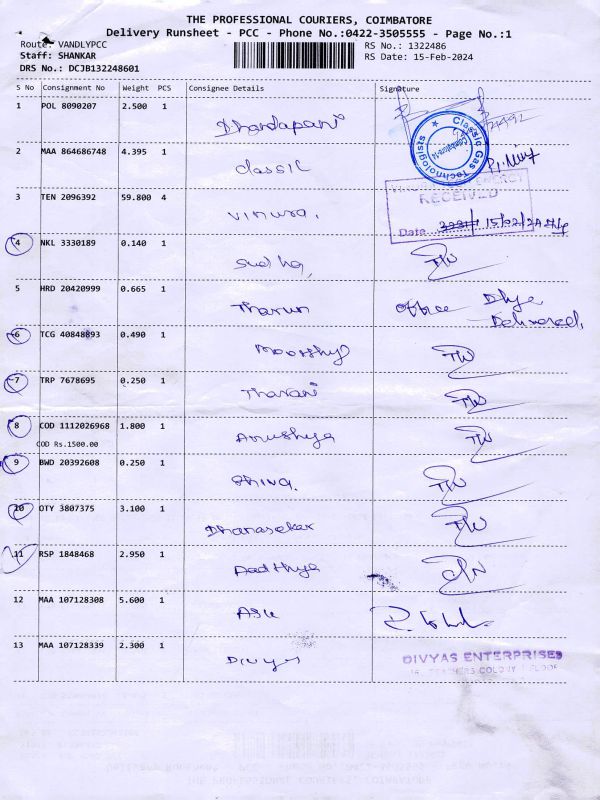 THE PROFESSIONAL COURIERS, COIMBATORE
Delivery Runsheet - PCC - Phone No.:0422-3505555 - Page No.:1
Route: VANDLYPCC
RS No.: 1322486
Staff: SHANKAR
RS Date: 15-Feb-2024
DRS No.: DCJB132248601
S No Consignment No Weight PCS Consignee Details Signature
1 POL 8090207 2.500 1 Dhandapani
Classic Gas Technologists
2 MAA 864686748 4.395 1 classic
3 TEN 2096392 59.800 4
RECEIVED
Date 15/02/24
4 NKL 3330189 0.140 1 Sudha,
5 HRD 20420999 0.665 1 Tharun office Delivered,
6 TCG 40848893 0.490 1 Moorthy
7 TRP 7678695 0.250 1 Tharani
8 COD 1112026968 1.800 1 Anushya
COD Rs.1500.00
9 BWD 20392608 0.250 1 Shiva.
10 OTY 3807375 3.100 1 Dhanasekar
11 RSP 1848468 2.950 1 Aadthya
12 MAA 107128308 5.600 1
13 MAA 107128339 2.300 1 Divya
DIVYAS ENTERPRISES
TEACHERS COLONY